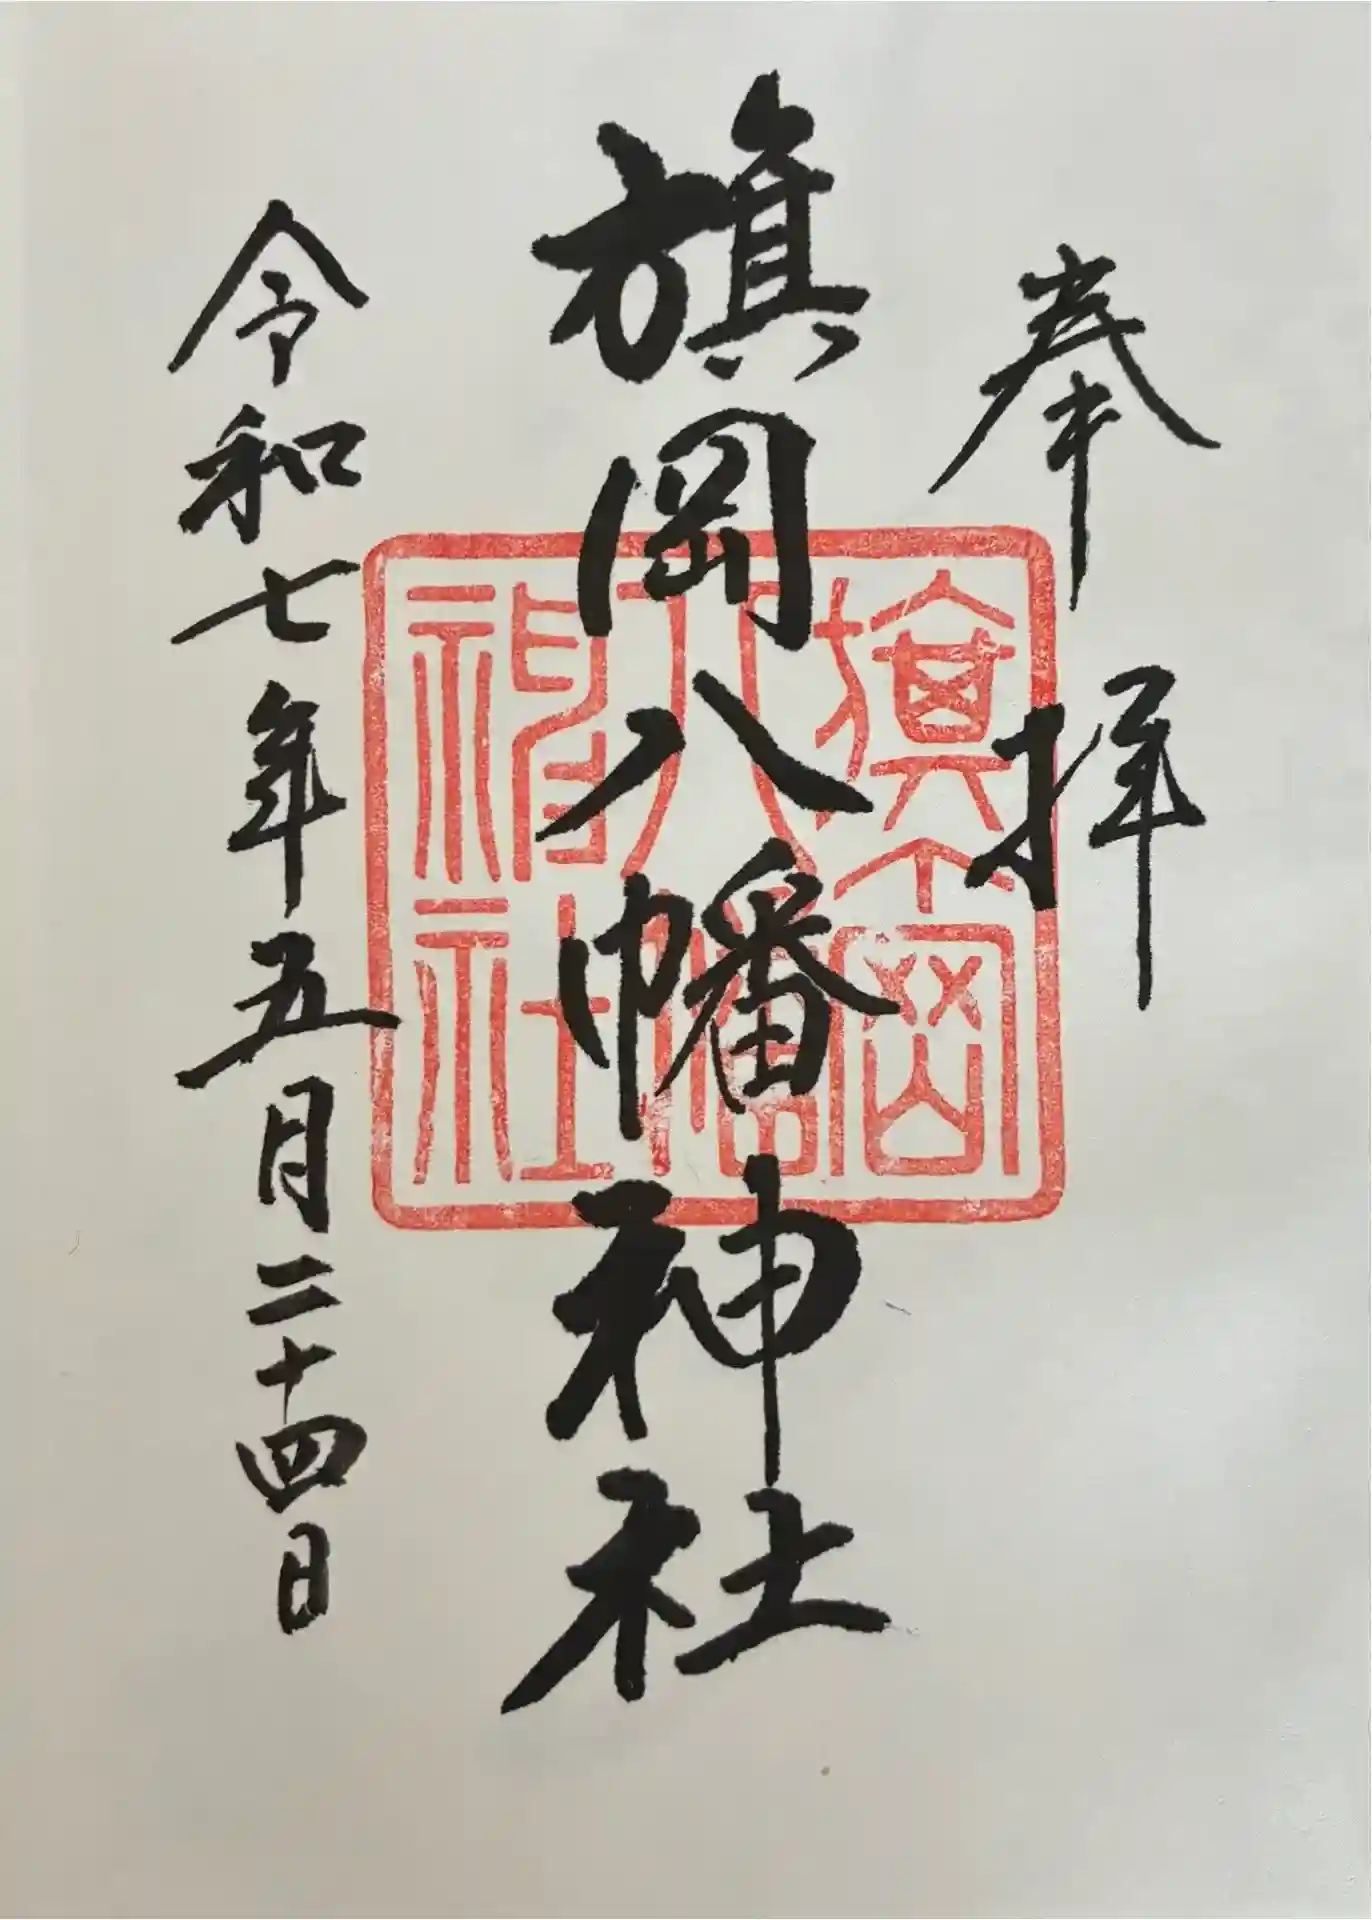 奉拝
旗岡八幡神社
旗岡
八幡
神社
令和七年五月二十四日